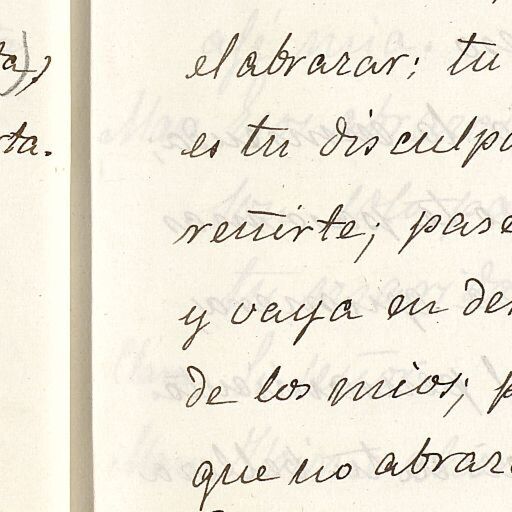 ta);
rta.
el abrazar; tu
es tu disculpa
reñirte; pase
y vaya en de
de los mios; p
que no abraz